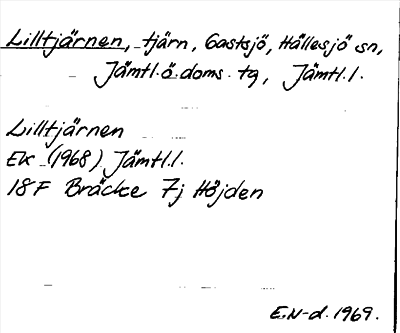 Lilltjärnen, tjärn, Gastsjö, Hällesjö sn,
Jämtl.ö.doms.tg, Jämtl.l.
Lilltjärnen
Ek (1968) Jämtl.l.
18F Bräcke 7j Höjden
E.N-d. 1969.